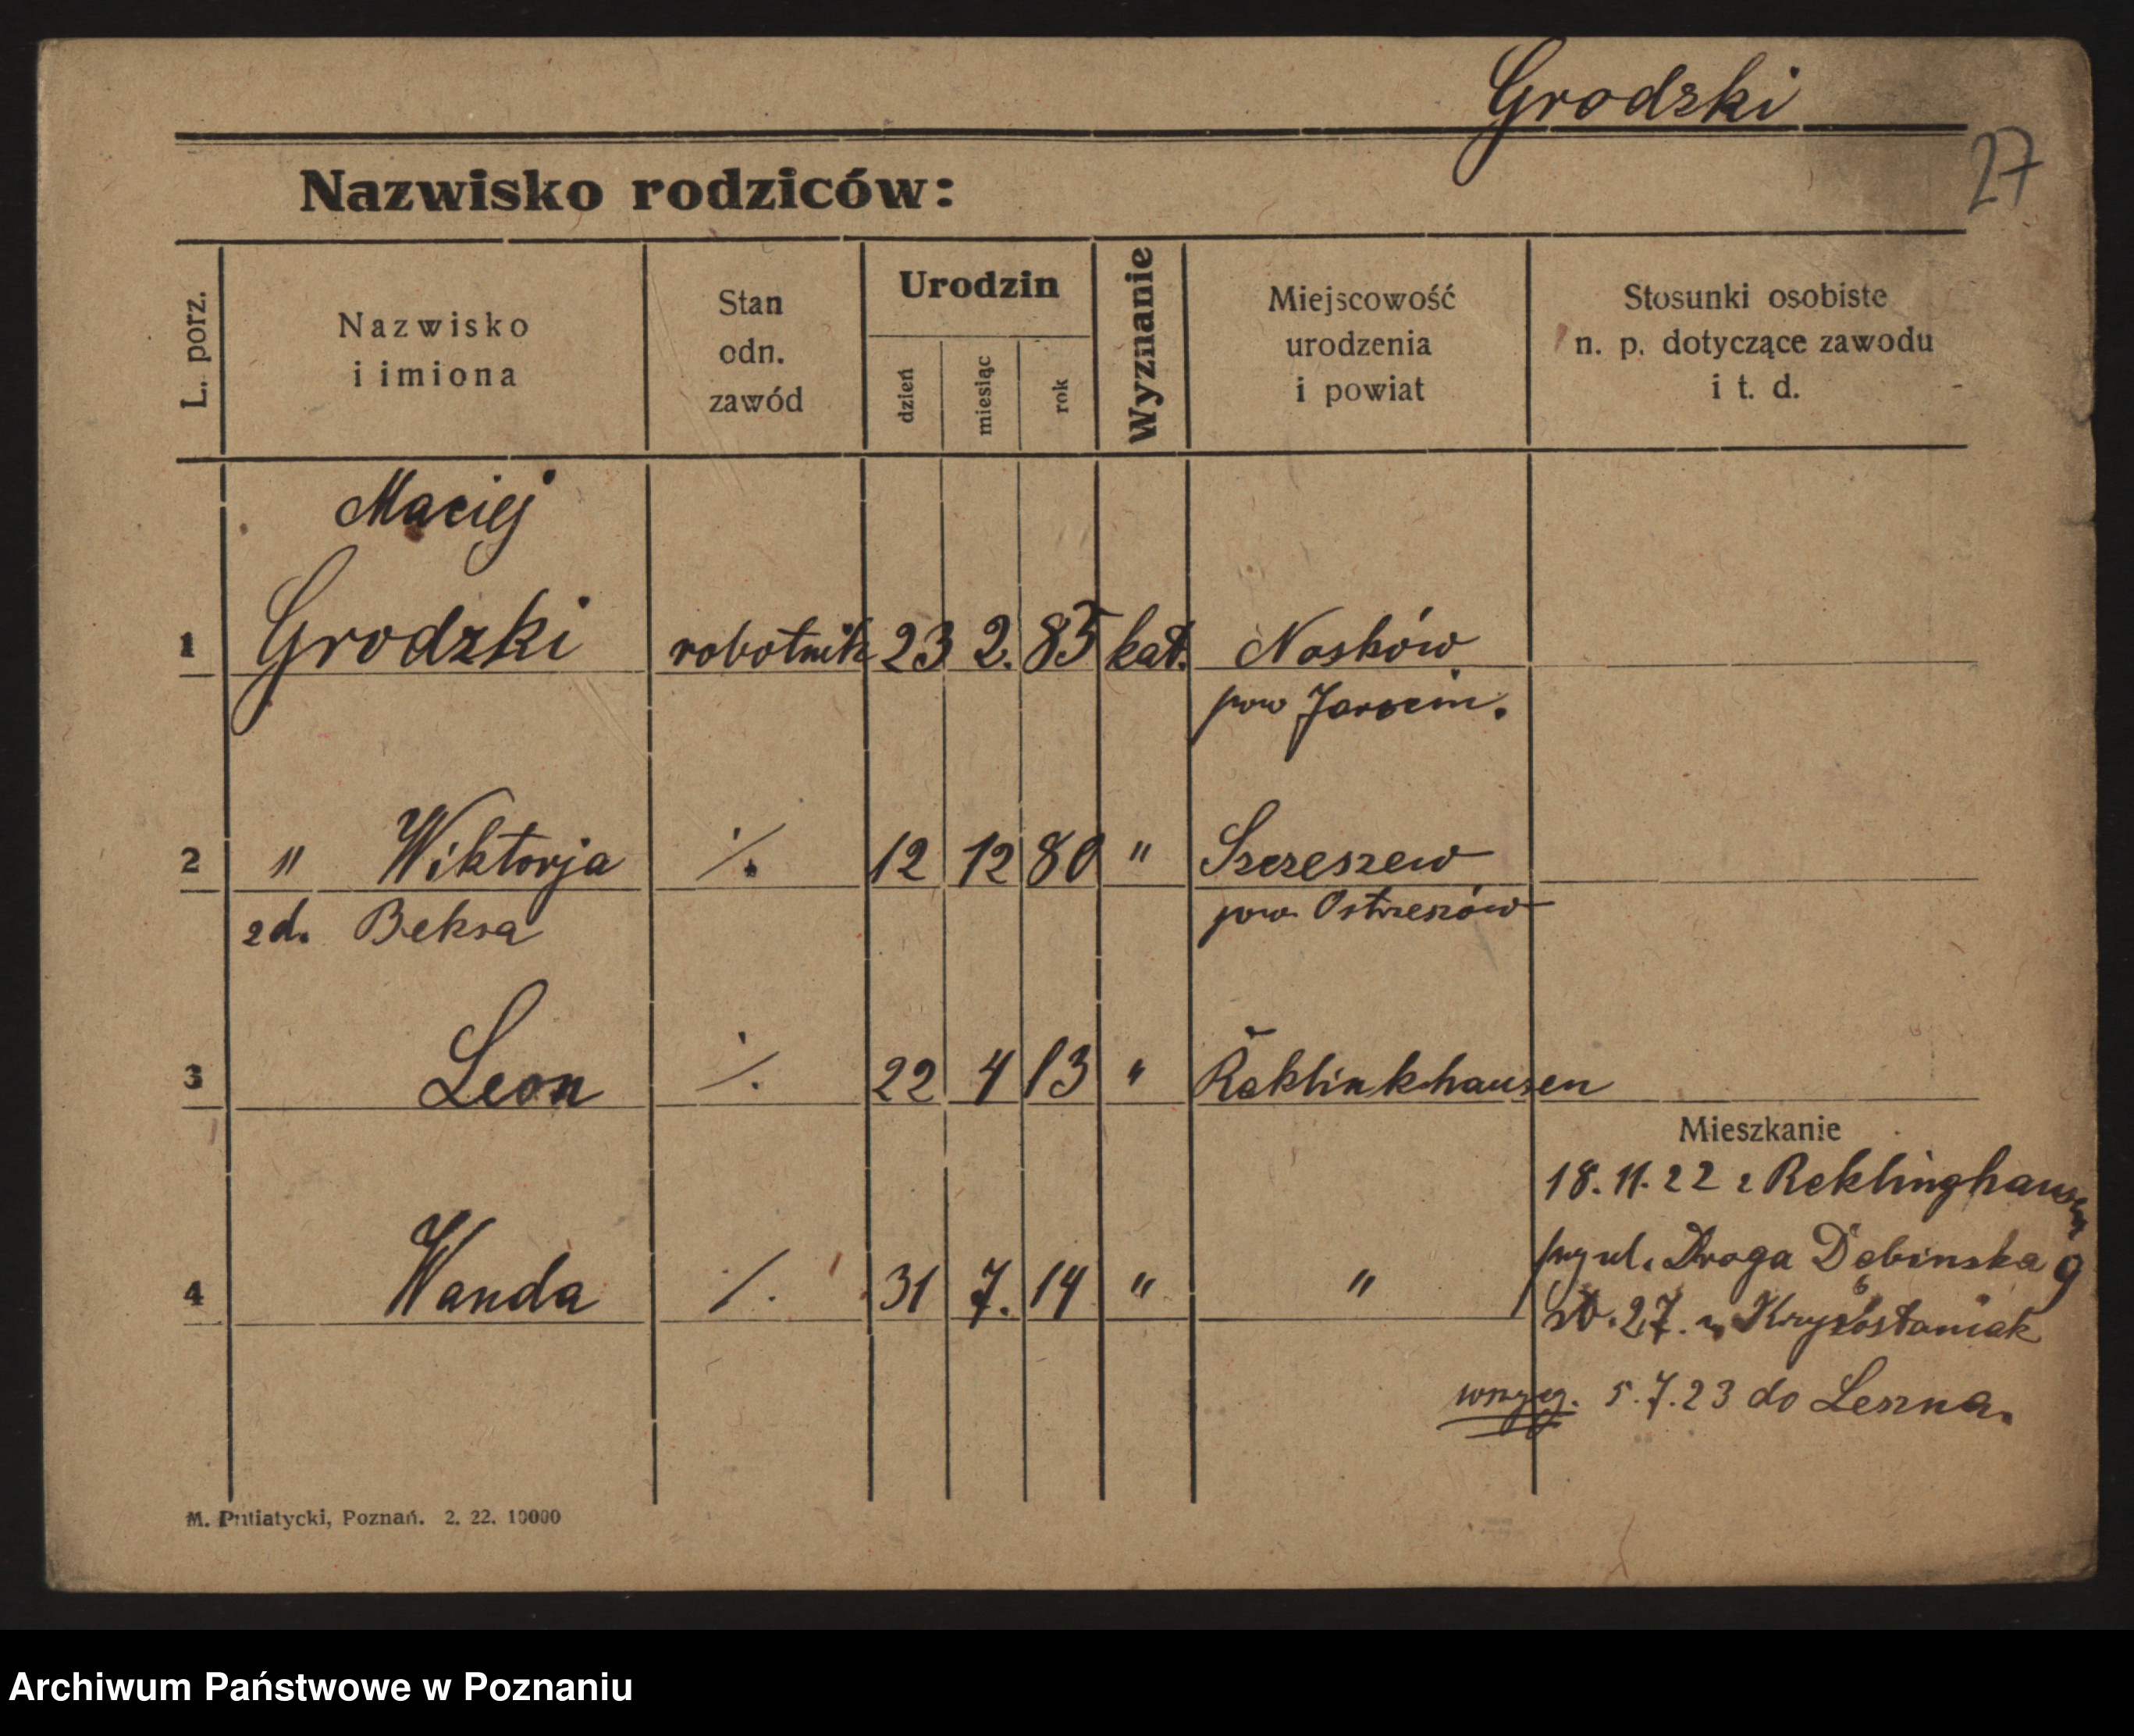 Grodzki
27
Nazwisko rodziców:
L. porz.
Nazwisko
i imiona
Stan
odn.
zawód
Urodzin
dzień
miesiąc
rok
Wyznanie
Miejscowość
urodzenia
i powiat
Stosunki osobiste
n. p. dotyczące zawodu
i t. d.
Maciej
1 Grodzki robotnik 23 2. 85 kat. Nosków
pow Jarocin.
2 " Wiktorja ·/. 12 12 80 " Szczeszew
zd. Beksa pow. Ostrzeszów
3 Leon ·/. 22 4 13 " Reklinkhausen
Mieszkanie
18.11.22 z Reklinghausen
ul. Droga Dębinska 9
4 Wanda /. 31 7. 14 " "
27. Krysostaniak
5.7.23 do Leszna.
M. Putiatycki, Poznań. 2. 22. 10000
Archiwum Państwowe w Poznaniu